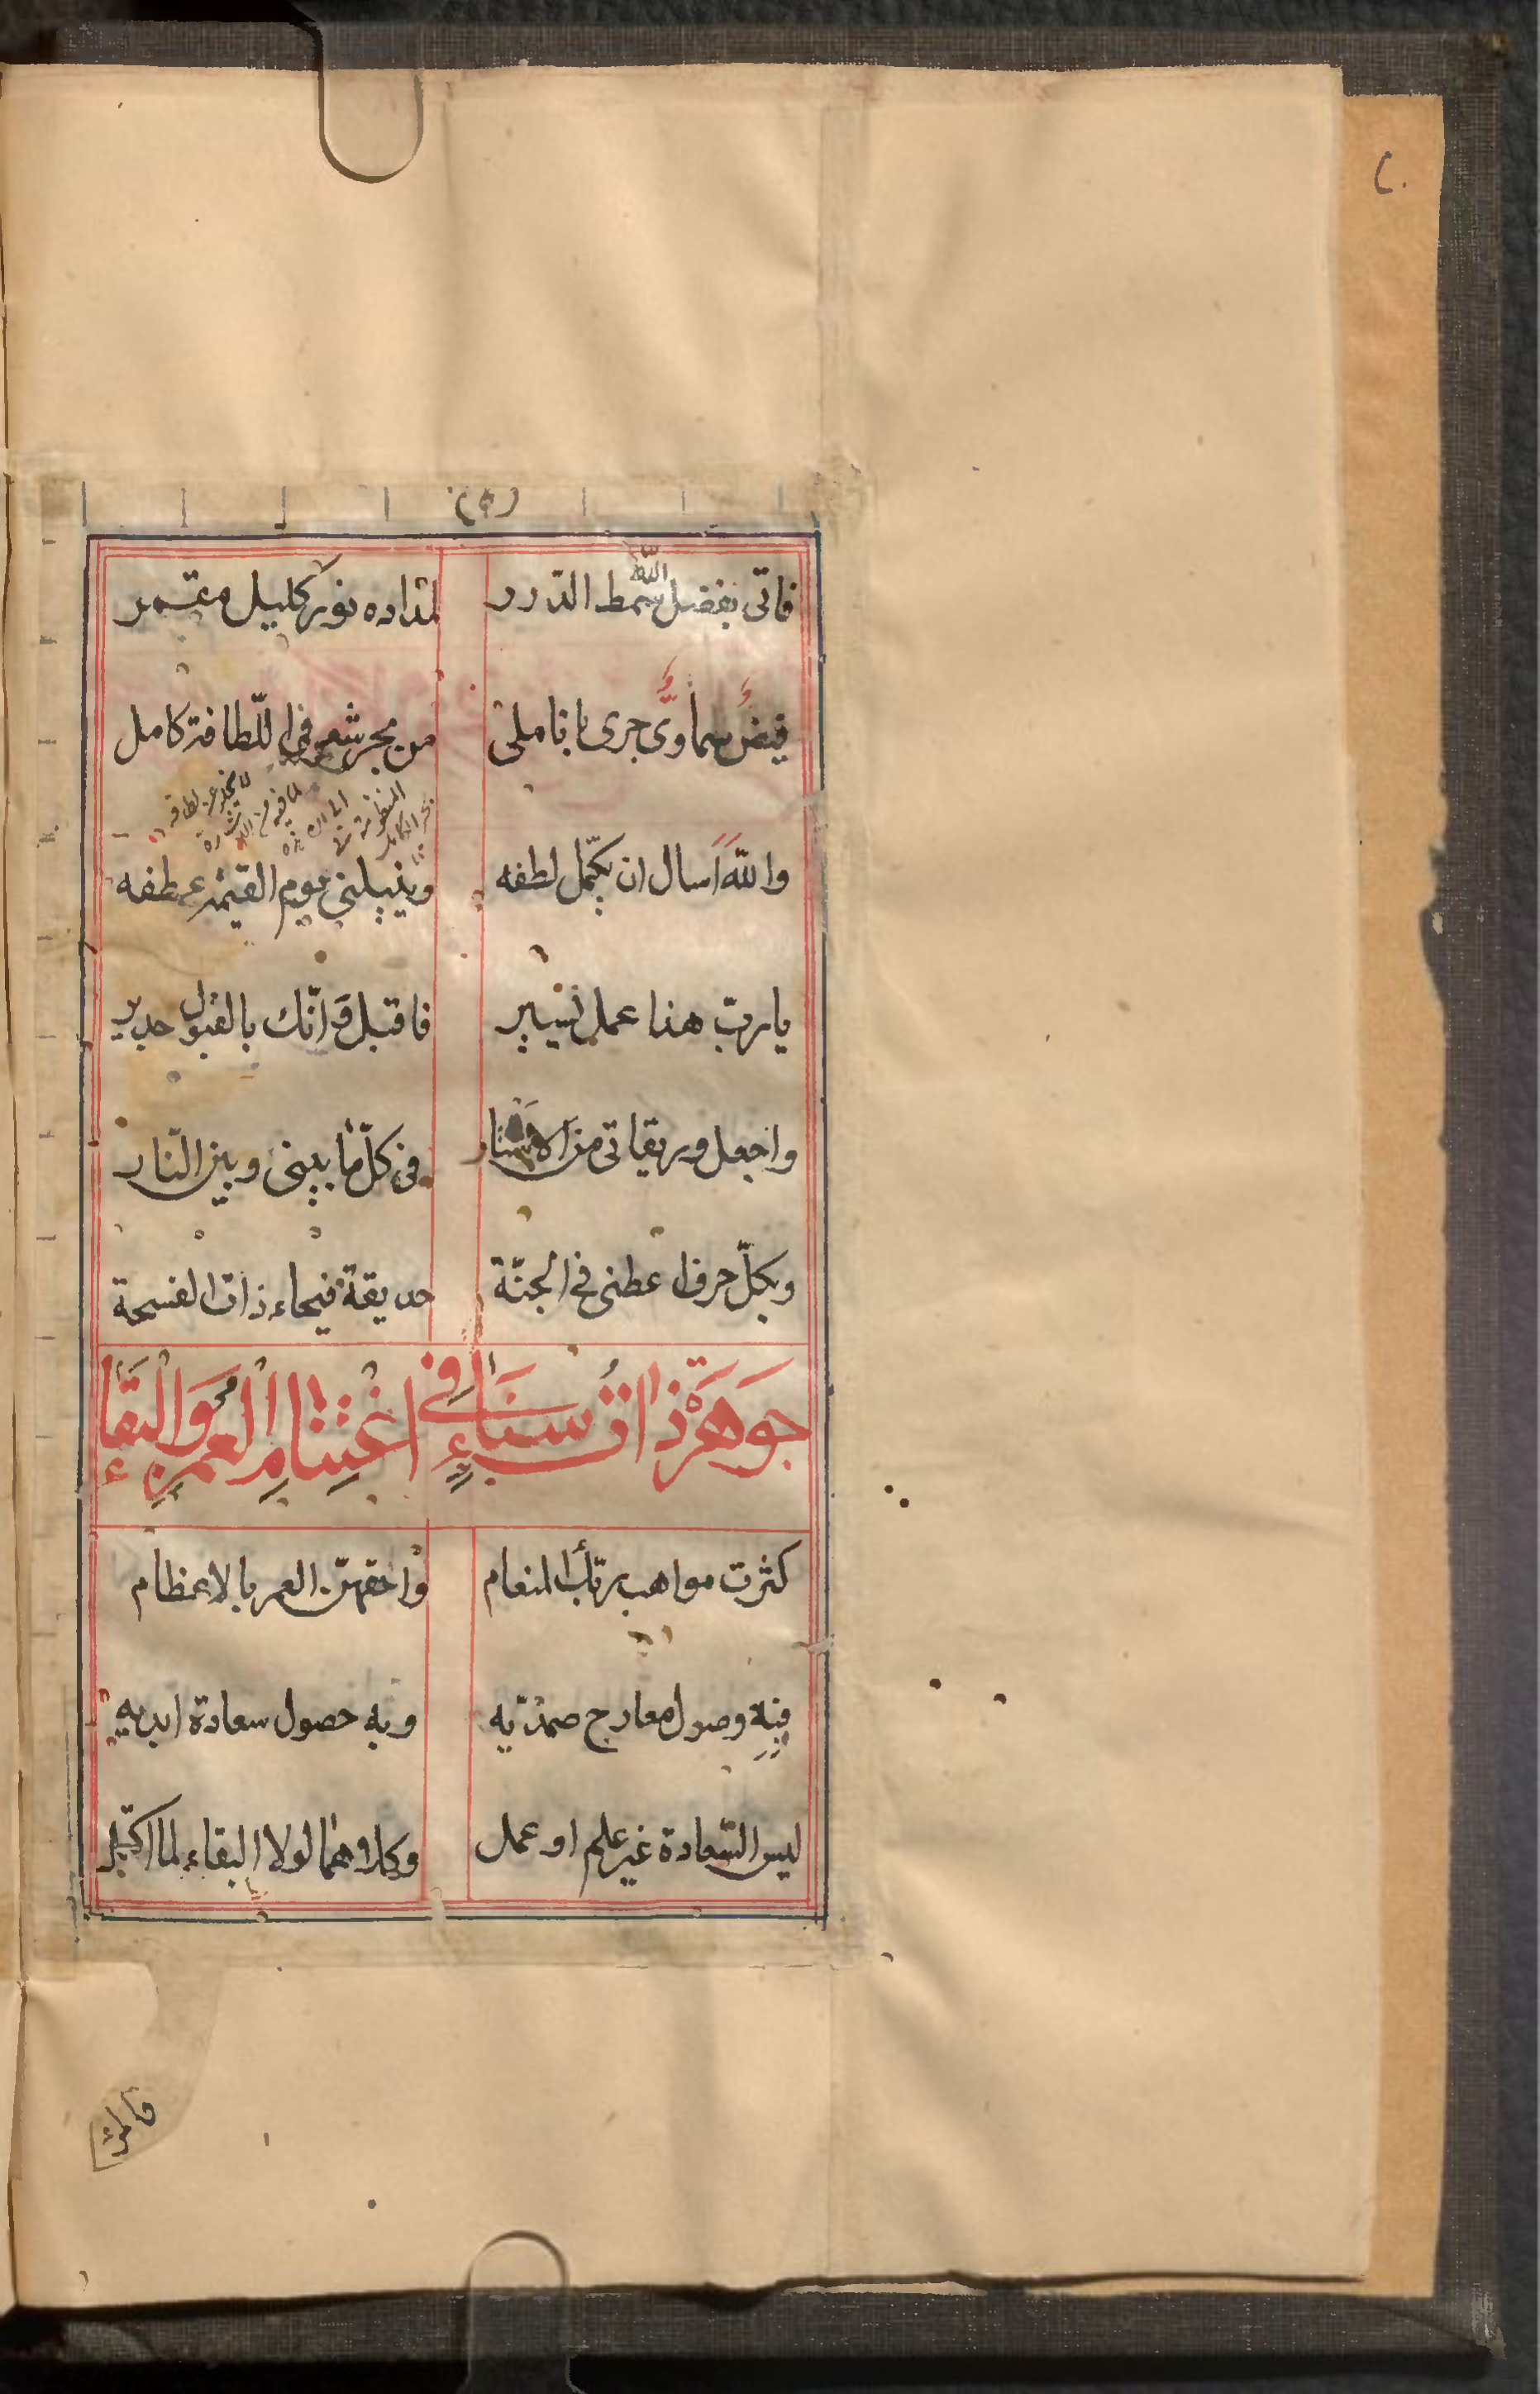 (٩)
فاتى بفضل الله سمط الدرر لمداده نور كليل مقمر
فيضٌ سماوىٌّ جرى باناملى من بحر شعر فى اللّطافة كامل
والله اَسال ان يكمّل لطفه وينيلنى يوم القيمة عطفه
يا ربّ هذا عمل يسير فاقبل فانّك بالقبول جدير
واجعل وريقاتى من الاستار فى كلّ ما بينى وبين النّار
وبكلّ حرف اعطنى فى الجنّة حديقة فيحاء ذات الفسحة
جَوهَرَة ذاتُ سَنَاءٍ فى اغتِنامِ العُمرِ وَالبَقاءِ
كثرت مواهب ربّك المنعام واحقهنّ العمر بالاعظام
فيه وصول معارج صمديّه وبه حصول سعادة ابديه
ليس السّعادة غير علم او عمل وكلاهما لولا البقاء لما اكتمل